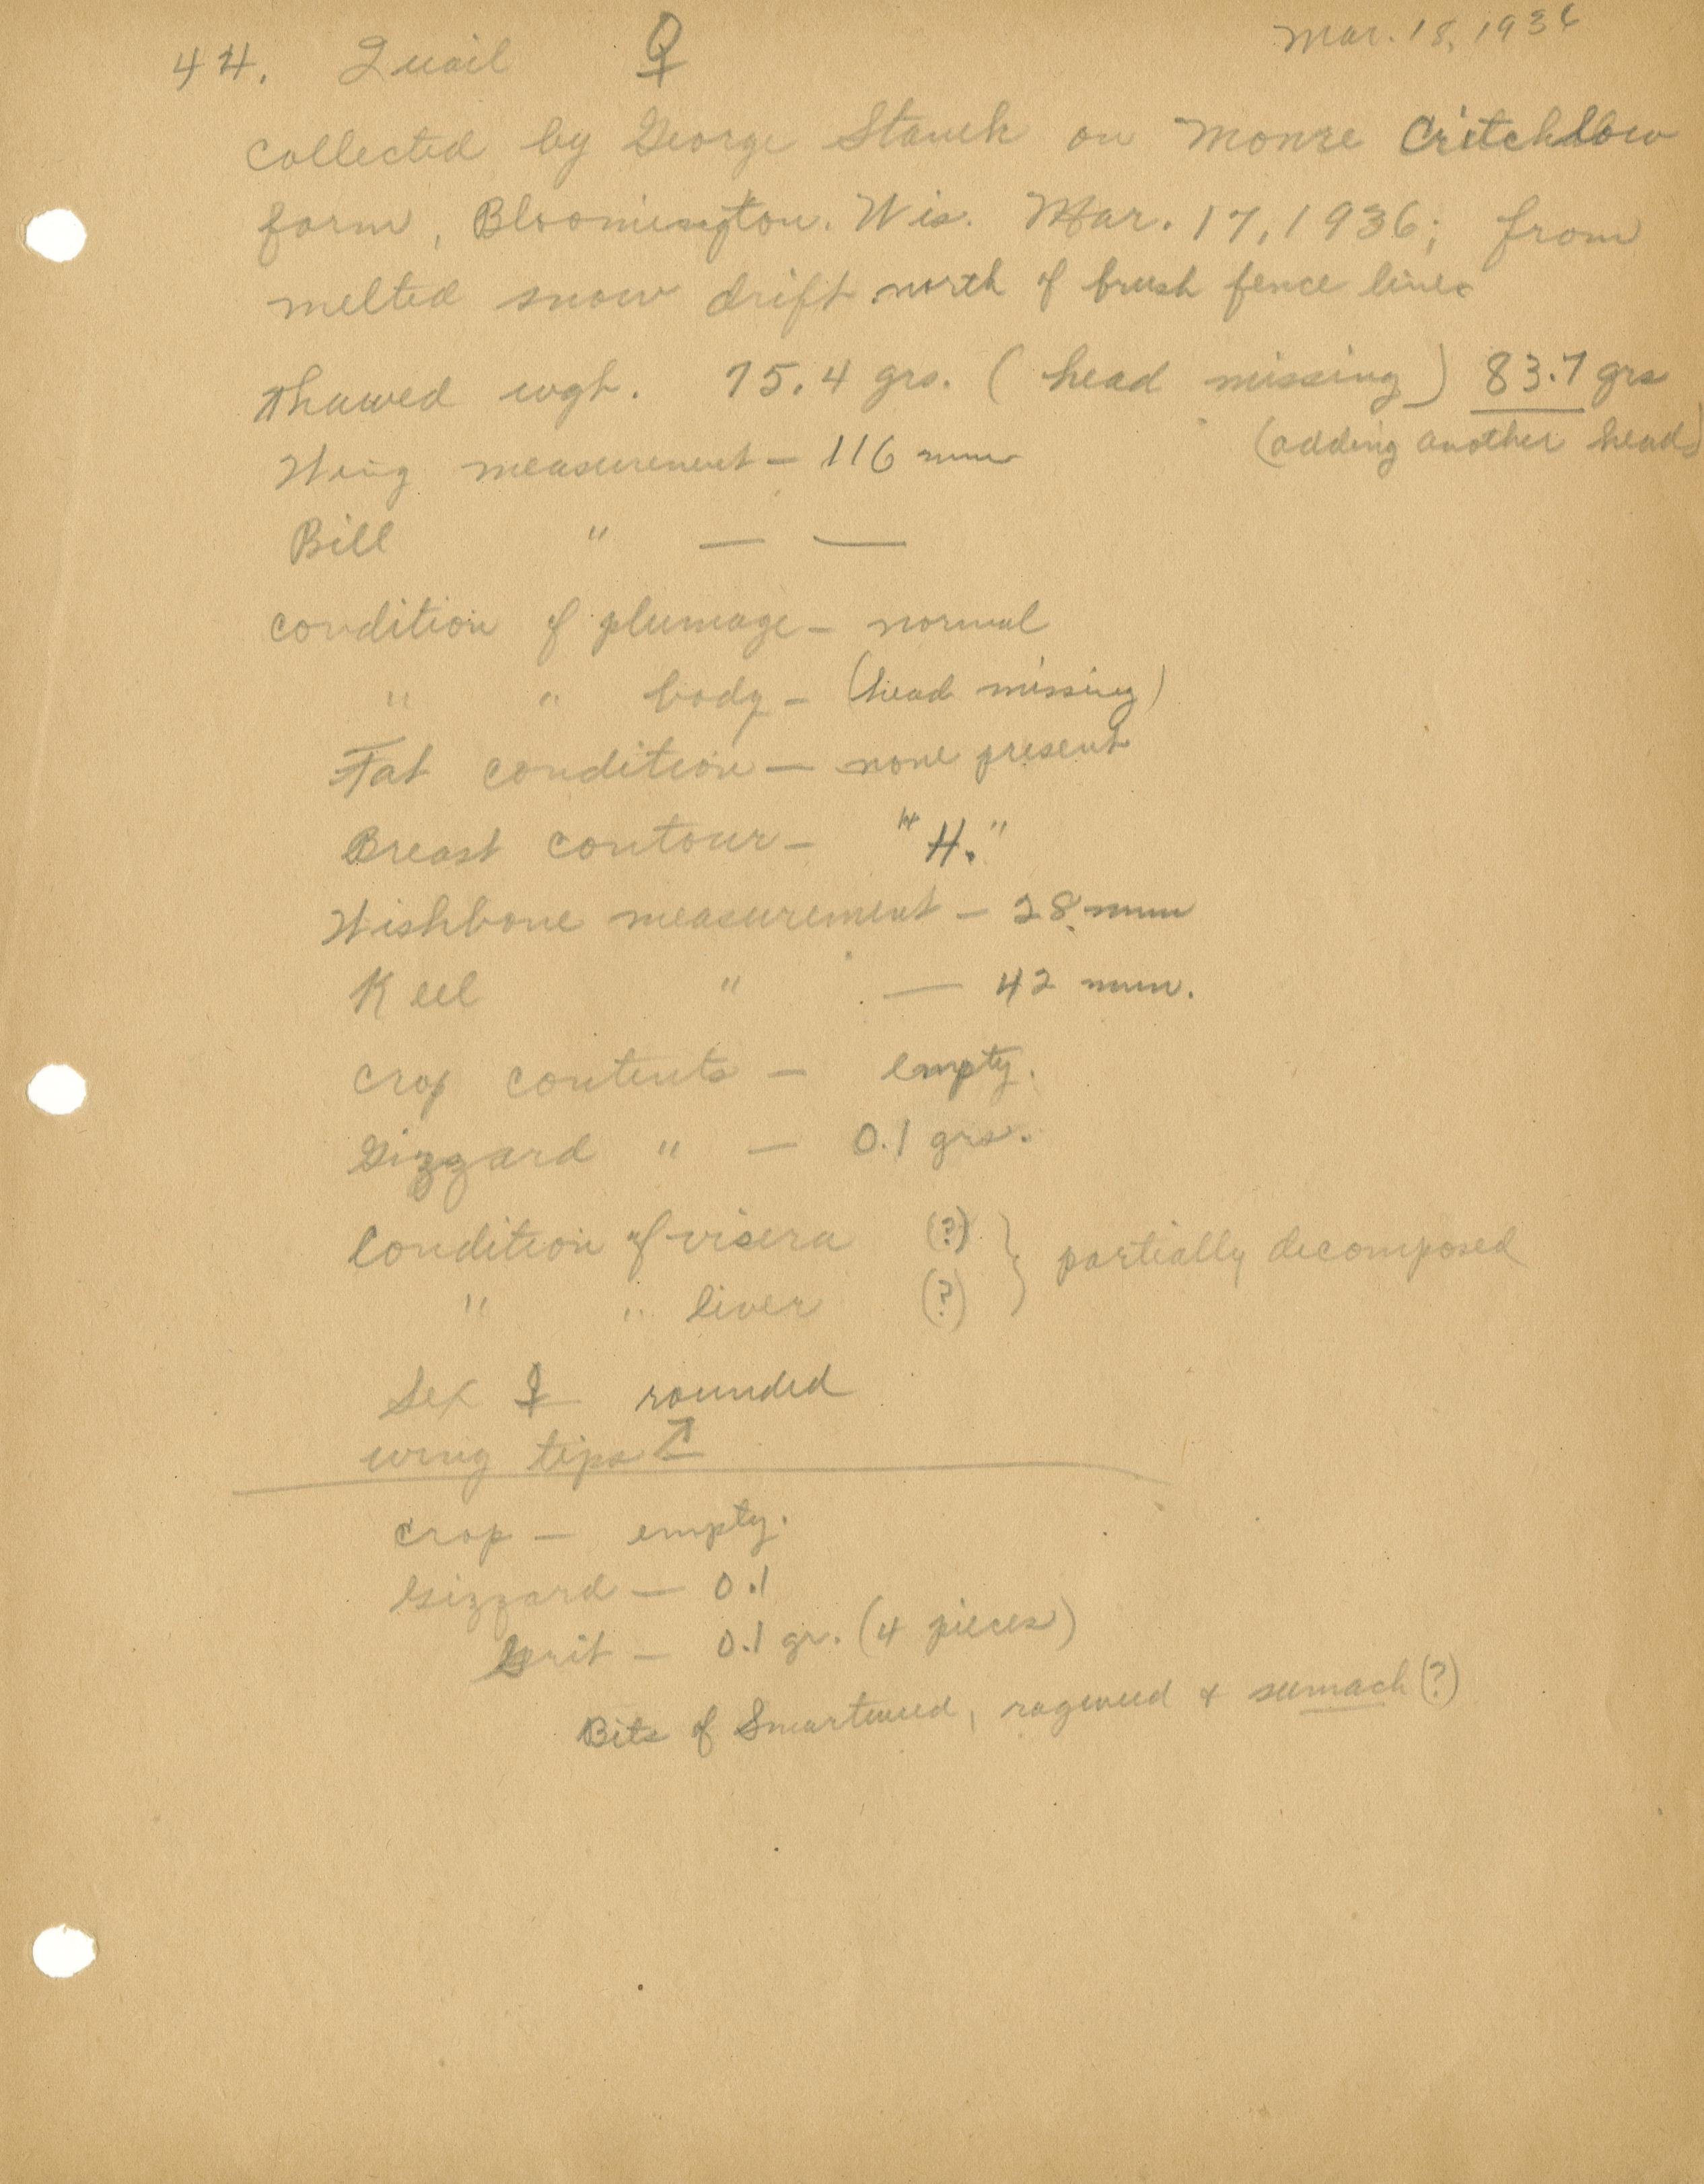 Mar. 18, 1936
44. Quail ♀
collected by George Stauch on Monre Critchlow
farm, Bloomington. Wis. Mar. 17, 1936; from
melted snow drift north of brush fence line
Thawed wgh. 75.4 grs. (head missing) 83.7 grs
(adding another head)
Wing measurement — 116 mm
Bill " — —
condition of plumage — normal
" " body — (head missing)
Fat condition — none present
Breast contour — "H."
Wishbone measurement — 28 mm
Keel " — 42 mm.
crop contents — empty.
Gizzard " — 0.1 grs.
Condition of visera (?) } partially decomposed
" " liver (?)
Sex ♀ rounded
wing tips ↗
crop — empty.
Gizzard — 0.1
Grit — 0.1 gr. (4 pieces)
Bits of Smartweed, ragweed & sumach (?)